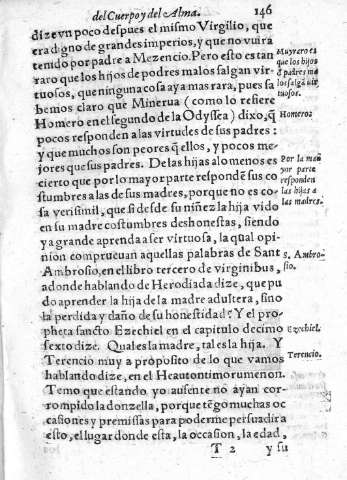 del Cuerpo y del Alma. 146
dize vn poco despues el mismo Virgilio, que
era digno de grandes imperios, y que no vuira
tenido por padre a Mezencio. Pero esto es tan
raro que los hijos de podres malos salgan vir-
tuosos, que ninguna cosa aya mas rara, pues sa
bemos claro que Minerua (como lo refiere
Homero en el segundo de la Odyssea) dixo, q̃
pocos responden a las virtudes de sus padres:
y que muchos son peores q̃ ellos, y pocos me-
jores que sus padres. De las hijas alomenos es
cierto que por lo mayor parte respondẽ sus co
stumbres a las de sus madres, porque no es co-
sa verisimil, que si desde su niñez la hija vido
en su madre costumbres deshonestas, siendo
ya grande aprenda a ser virtuosa, la qual opi-
nion comprueuan aquellas palabras de Sant
Ambrosio, en el libro tercero de virginibus,
adonde hablando de Herodiada dize, que pu
do aprender la hija de la madre adultera, sino
la perdida y daño de su honestidad? Y el pro-
pheta sancto Ezechiel en el capitulo decimo
sexto dize. Qual es la madre, tal es la hija. Y
Terencio muy a proposito de lo que vamos
hablando dize, en el Heautontimorumenon.
Temo que estando yo ausente no ayan cor-
rompido la donzella, porque tẽgo muchas oc
casiones y premissas para poderme persuadir a
esto, el lugar donde esta, la occasion, la edad,
T 2 y su
Muy rero es
que los hijos
d padres ma
los salgã vir
tuosos.
Homero.
Por la ma
yor parte
responden
las hijas a
las madres.
S. Ambro-
sio.
Ezechiel.
Terencio.